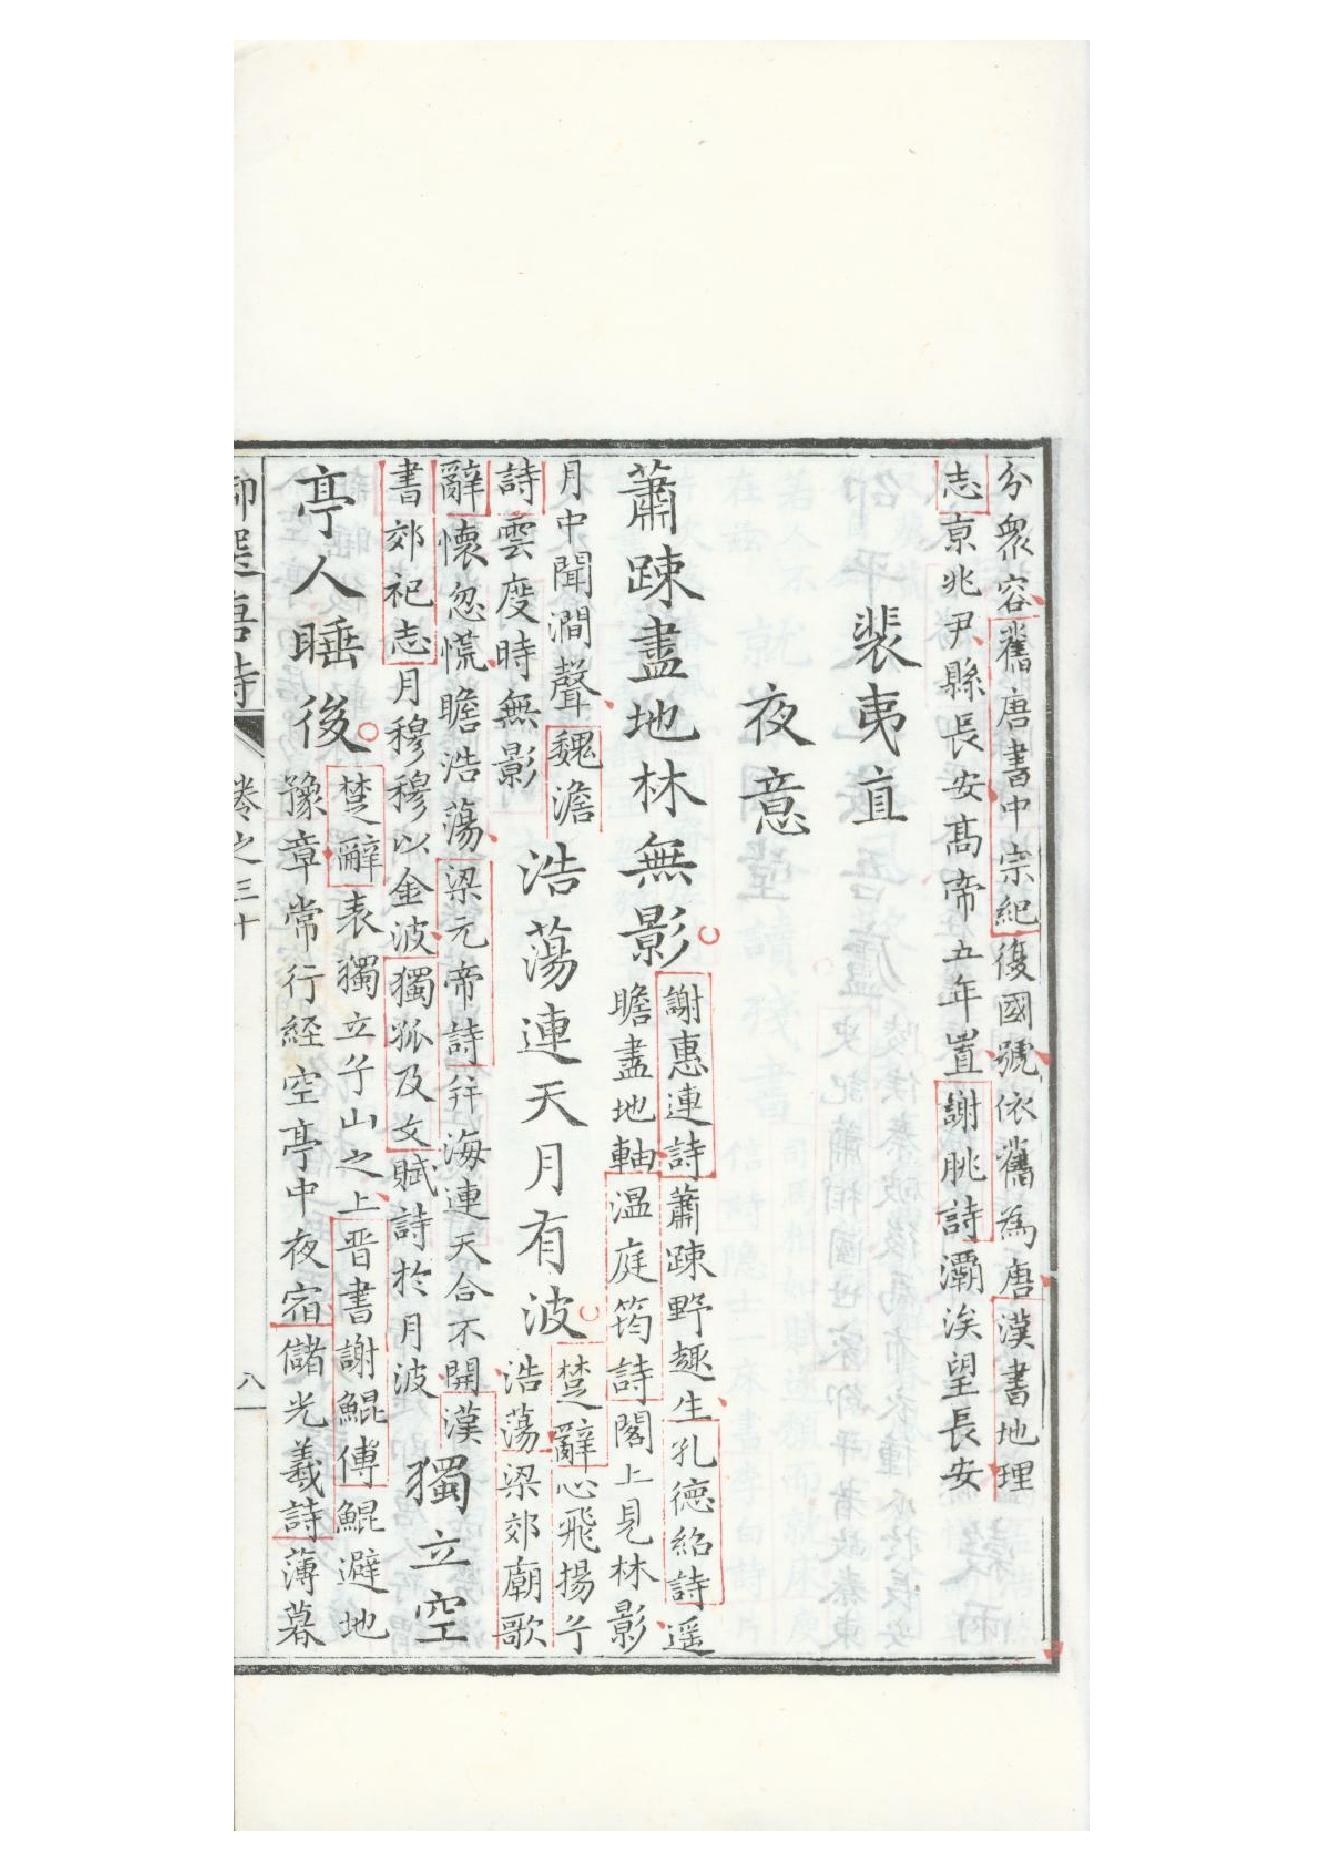 分衆容舊唐書中宗紀復國號依舊為唐漢書地理
志京兆尹縣長安髙帝五年置謝朓詩灞涘望長安
裴夷直
夜意
蕭踈盡地林無影
謝惠連詩蕭踈野趣生孔德紹詩遥
瞻盡地軸溫庭筠詩閣上見林影
月中聞澗聲魏澹
詩雲度時無影
浩蕩連天月有波
楚辭心飛揚兮
浩蕩梁郊廟歌
辭懷忽慌瞻浩蕩梁元帝詩幷海連天合不開漢
書郊祀志月穆穆以金波獨孤及文賦詩於月波
獨立空
亭人睡後
楚辭表獨立兮山之上晋書謝鯤傳鯤避地
豫章常行經空亭中夜宿儲光羲詩薄暮
御選唐詩
卷之三十
八